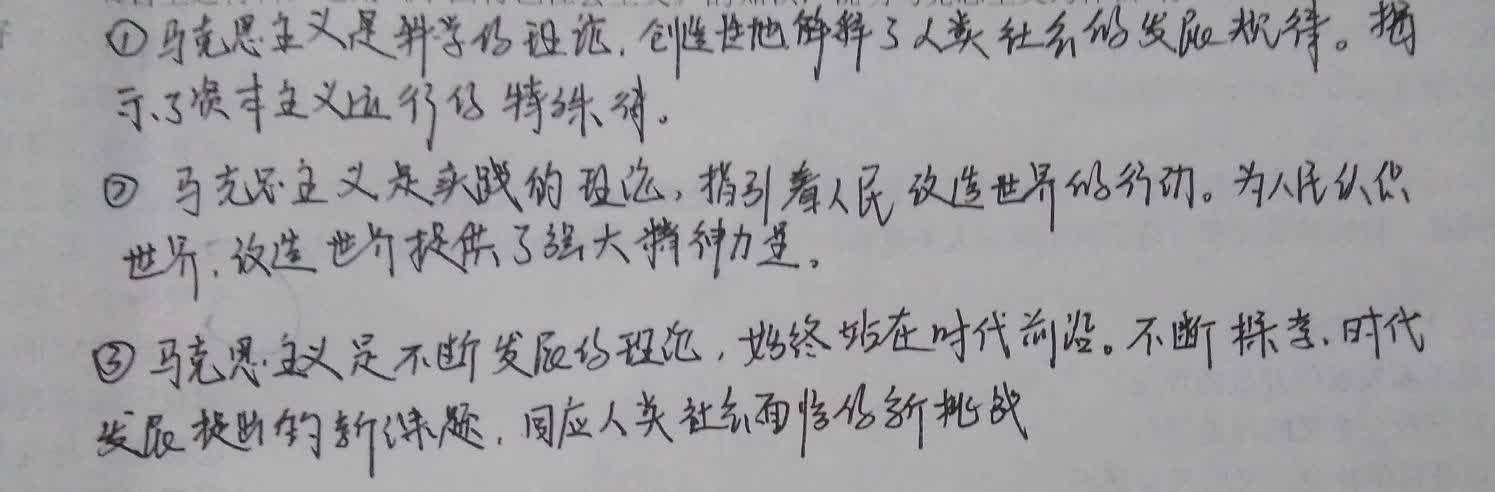 ①马克思主义是科学的理论，创造性地解释了人类社会的发展规律。揭
示了资本主义运行的特殊律。
② 马克思主义是实践的理论，指引着人民改造世界的行动。为人民认识
世界，改造世界提供了强大精神力量。
③马克思主义是不断发展的理论，始终站在时代前沿。不断探索、时代
发展提出的新课题，回应人类社会面临的新挑战